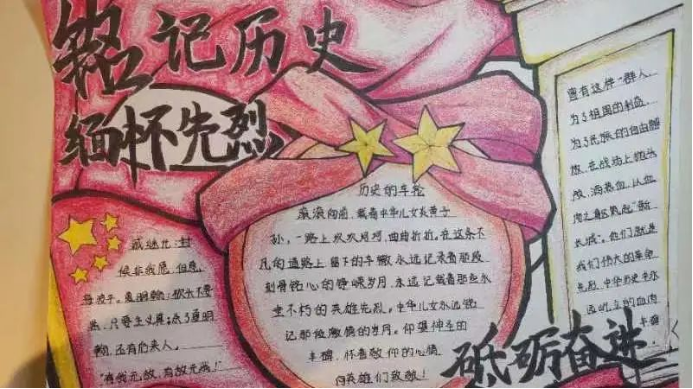 铭记历史
缅怀先烈
历史的车轮
滚滚向前,载着中华儿女炎黄子
孙,一路上坎坎坷坷,曲曲折折,在这条不
凡的道路上留下的车辙,永远记录着那段
刻骨铭心的峥嵘岁月,永远记载着那些永
垂不朽的英雄先烈。中华儿女永远铭
记那段激情的岁月。仰望神圣的
丰碑,怀着敬仰的心情
向英雄们致敬!
曾有这样一群人
为了祖国的利益
为了民族的自由解
放,在战场上抛头
颅,洒热血,以血
肉之躯筑起"新
长城"。他们就是
我们伟大的革命
先烈,中华历史永
远屹立的血肉
丰碑
封侯非我愿,但愿
海波平。
只要主义真;杀了夏明
翰,还有后来人。
砥砺奋进